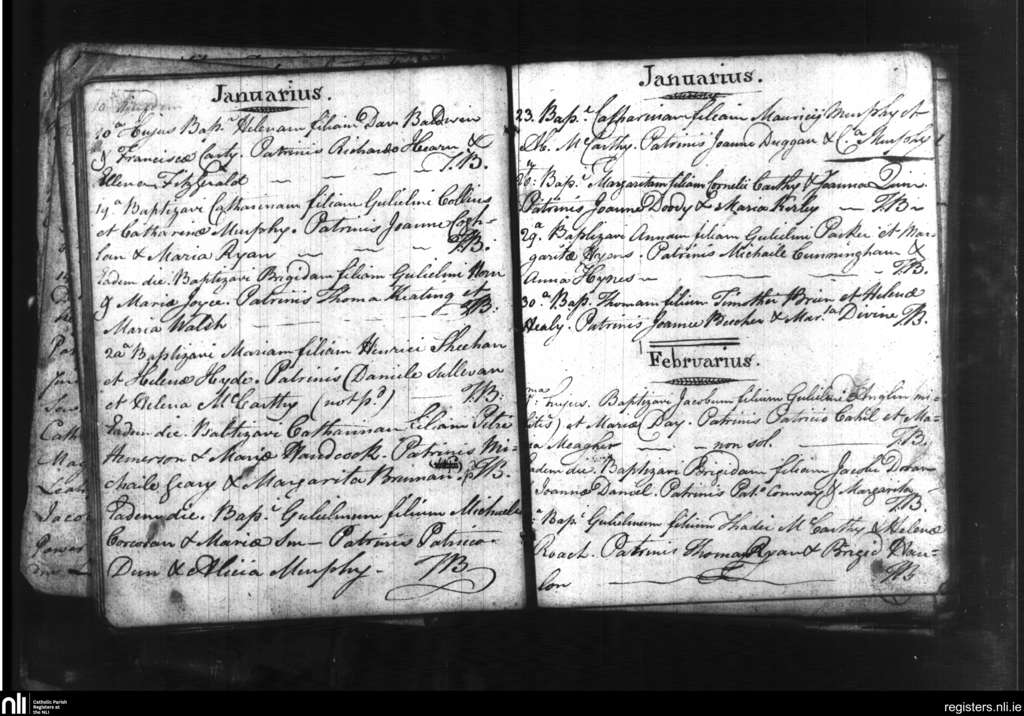 Januarius.
10a Hujus Bapt Helenam filiam Dav Baldwin
& Franciscæ Carty. Patrinis Richardo Hearn &
Ellena FitzGerald — — — — T.B.
19a Baptizavi Catharinam filiam Gulielmi Collins
et Catharenæ Murphy. Patrinis Joanne Cogh-
lan & Maria Ryan — — — T.B.
Eadem die. Baptizavi Brigidam filiam Gulielmi Horn
& Mariæ Joyce. Patrinis Thoma Keating et
Maria Walsh — — — T.B.
22a Baptizavi Mariam filiam Henrici Sheehan
et Helenæ Hyde. Patrinis (Daniele Sullevan
et Helena McCarthy (not pd) — T.B.
Eadem die. Baptizavi Catharinam filiam Petri
Hemerson & Mariæ Handcook. Patrinis Mi-
chaile Geary & Margarita Brennan. T.B.
Eadem die. Bapt Gulielmum filium Michaelis
Corcoran & Mariæ Sm— Patrinis Patricio
Dun & Alicia Murphy — T.B.
Januarius.
23. Bapt Catharinam filiam Mauricij Murphy et
McCarthy. Patrinis Joanne Duggan & Ca Murphy
Bapt Margaritam filiam Cornelii Carthy & Joannæ Quin
Patrinis Joanne Doody & Maria Kirby — T.B—
29a Baptizavi Annam filiam Gulielmi Parker et Mar-
garitæ Hyens. Patrinis Michaile Cunningham &
Anna Hynes — — — T.B.
30a Bapt Thomam filium Timothei Brien et Helenæ
Healy. Patrinis Joanne Beecher & Marta Divine T.B.
Februarius.
hujus. Baptizavi Jacobum filium Gulielmi Anglin mi-
litis) et Mariæ (Day. Patrinis Patricio Cahil et Ma-
ria Meagher — — non sol. — T.B.
Eadem die. Baptizavi Brigidam filiam Jacobi Doran
Joannæ Daniel. Patrinis Pato Conway & Margarita
T.B.
Bapt Gulielmum filium Thadei McCarthy & Helenæ
Roach. Patrinis Thoma Ryan & Brigid Han-
lon — T.B
nli
Catholic Parish
Registers at
the NLI
registers.nli.ie